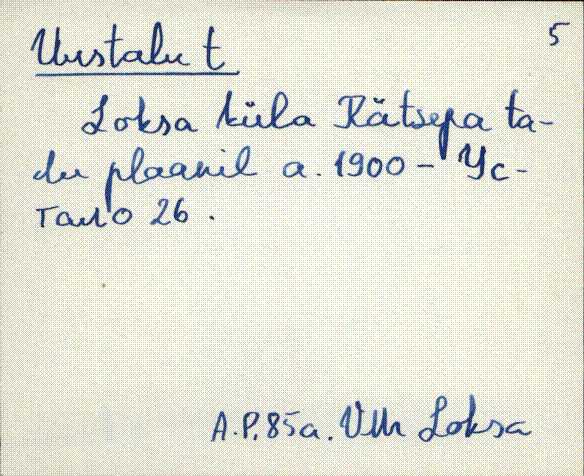 5
Uustalu t
Loksa küla Rätsepa ta-
lu plaanil a. 1900 - Ус-
тало 26.
A.P. 85a. Loksa